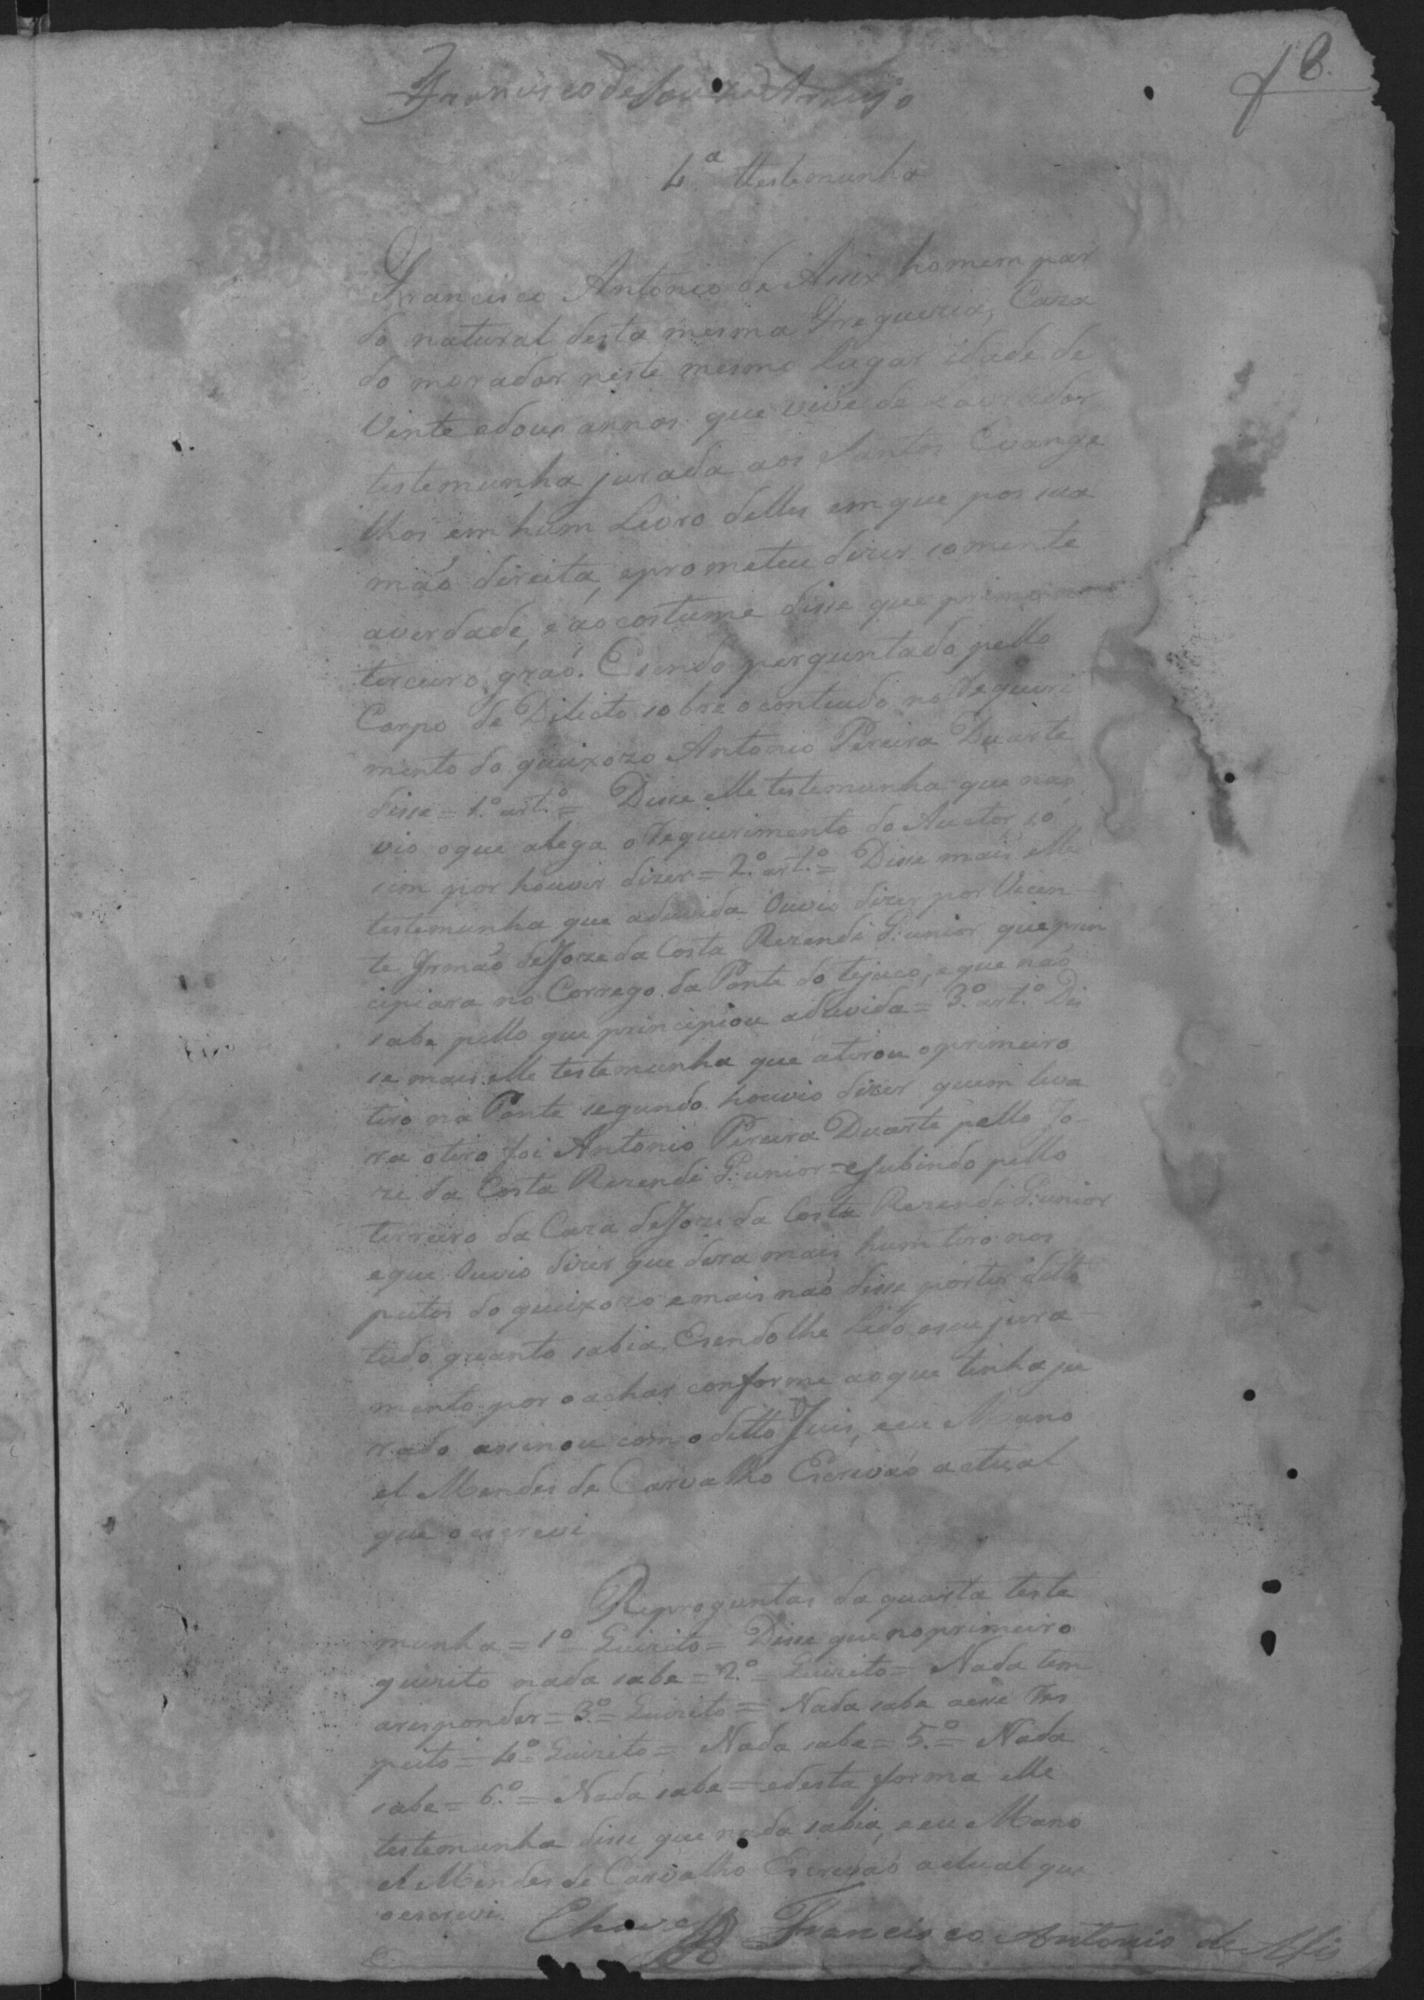 8.
Francisco de Souza Araujo
4ª testemunha
Francisco Antonio de Assix homem par
do natural desta mesma Fregueria, Caza
do morador neste mesmo Lugar idade de
Vinte edous annos que vive de Lavrador
testemunha jurada aos Santos Evange
lhos em hum Livro delles em que pos sua
mão direita, eprometeu dizer somente
averdade, e áo costume disse que primo
terceiro gráo. Esendo perguntado pello
Corpo de Dilicto sobre ocontiudo no Requiri
mento do queixozo Antonio Pereira Duarte
disse = 1º art.º = Disse elle testemunha que não
vio oque alega o Requirimento do Auctor só
sim por houvir dizer = 2.º art.º = Disse mais elle
testemunha que aduvida Ouvio dizer por Vicen
te Yrmão deJoze da Costa Rezende Junior que prin
cipiara no Corrego da Ponte do tejuco, eque não
sabe pello que principiou aduvida = 3.º art.º Dis
se mais elle testemunha que atirou oprimeiro
tiro na Ponte segundo houvio dizer quem leva
ra otiro foi Antonio Pereira Duarte pello Jo
ze da Costa Rezende Junior = esubindo pello
terreiro da Caza deJoze da Costa Rezende Junior
eque Ouvio dizer que dera mais hum tiro nos
peitos do queixozo emais não disse por ter ditto
tudo quanto sabia. Esendolhe Lido oseu jura
mento por oachar conforme aoque tinha ju
rado assinou com oditto Juis, eeu Mano
el Mendes de Carvalho Escrivão actual
que oescrevi
Reproguntas da quarta teste
munha = 1º Quizito = Disse que noprimeiro
quizito nada sabe = 2.º = Quizito = Nada tem
aresponder = 3.º = Quizito = Nada sabe aesse res
peito = 4º = Quizito = Nada sabe = 5.º = Nada
sabe = 6.º = Nada sabe = edesta forma elle
testemunha disse que nada sabia, eeu Mano
el Mendes de Carvalho Escrivão actual que
oescrevi.
Chaves Francisco Antonio de Asis